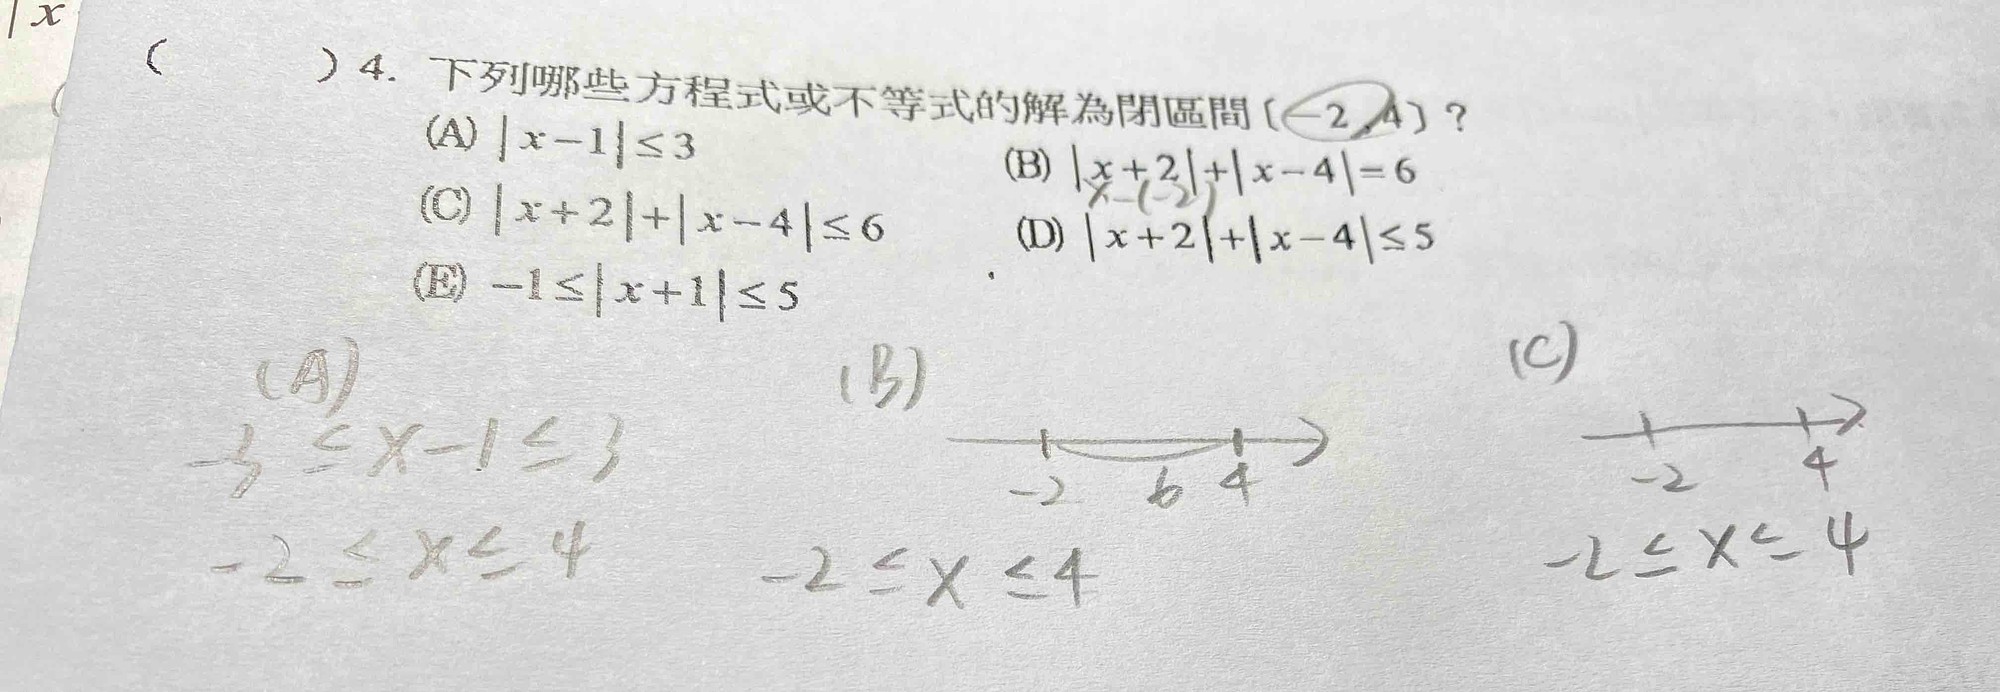 |x
(   )4. 下列哪些方程式或不等式的解為閉區間〔-2,4〕?
(A) |x-1|≤3
(B) |x+2|+|x-4|=6
x-(-2)
(C) |x+2|+|x-4|≤6
(D) |x+2|+|x-4|≤5
(E) -1≤|x+1|≤5
(A)
-3≤x-1≤3
-2≤x≤4
(B)
-2 6 4
-2≤x≤4
(C)
-2 4
-2≤x≤4